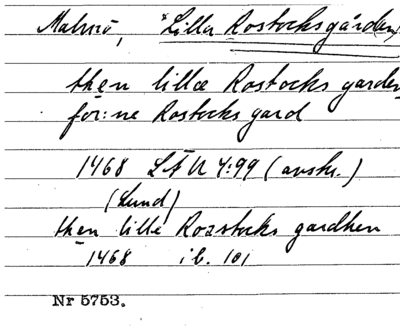 Malmö, *Lilla Rostocksgård(en)
then lillæ Rostocks garden
för:ne Rostocks gard
1468 LÄU 4:99 (avskr.)
(Lund)
then lille Rozstocks gardhen
1468 ib. 101
Nr 5753.